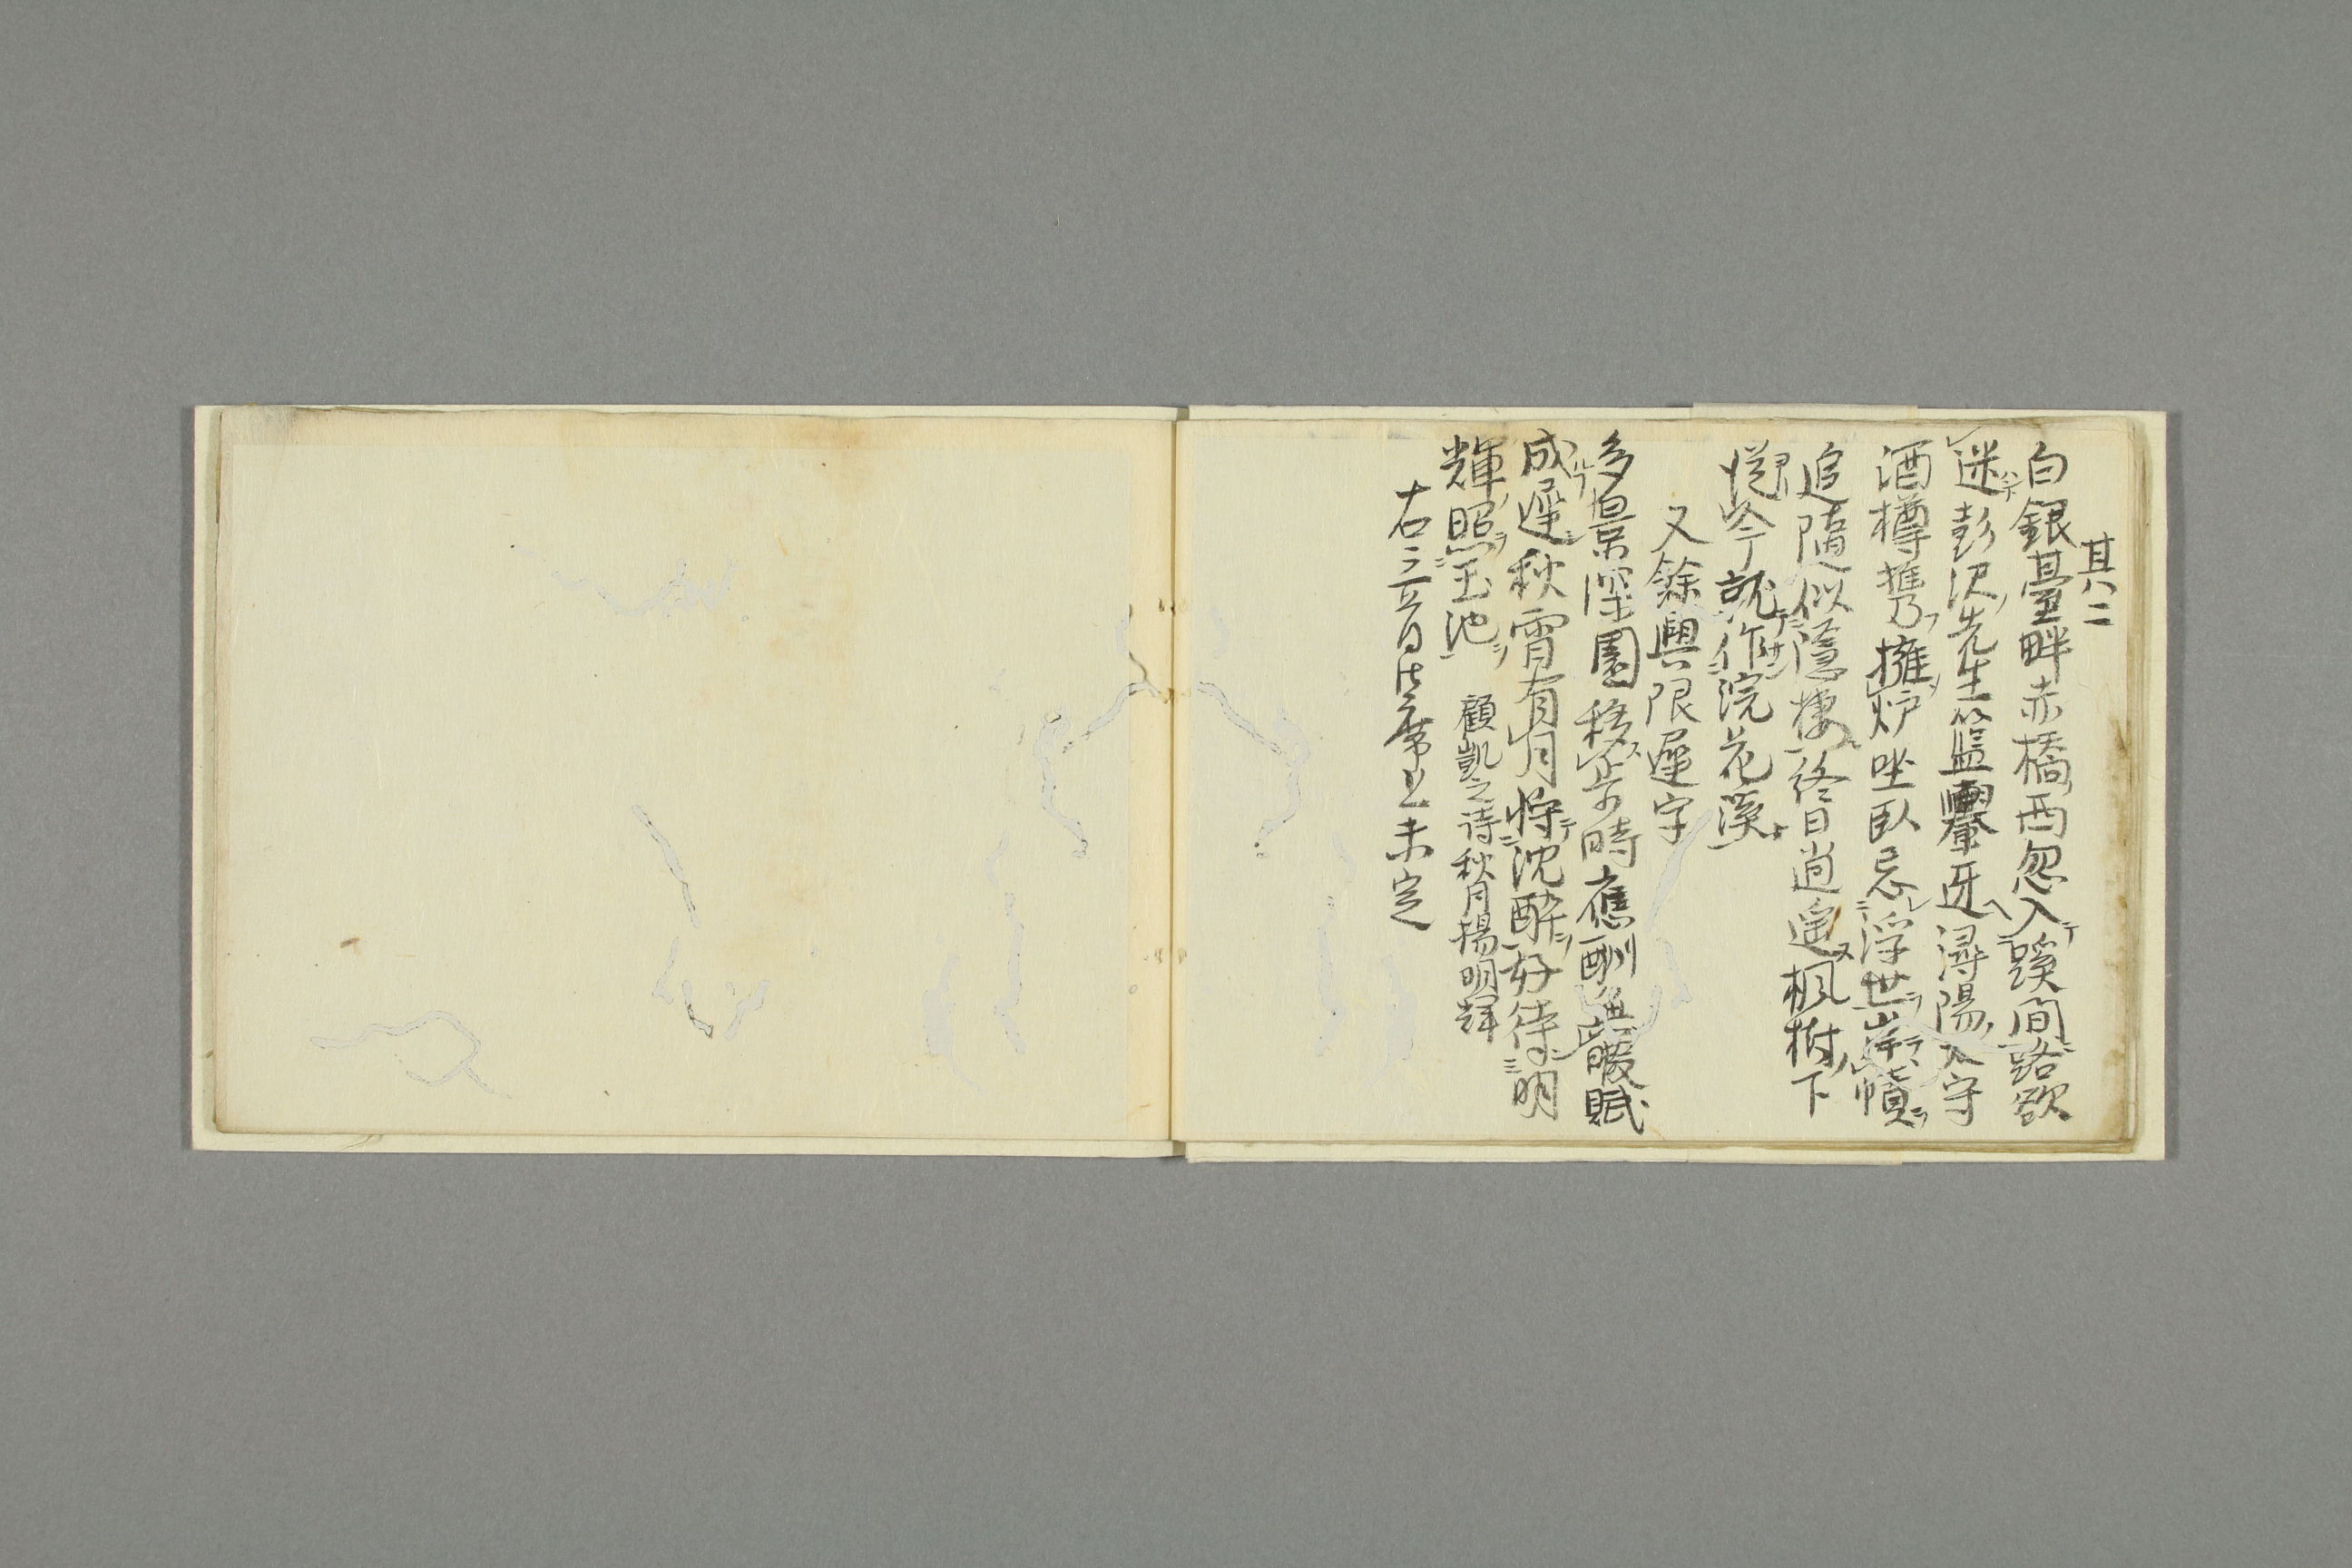 其二
白銀臺畔赤橋西忽入蹊間路欲
迷彭沢先生籃轝迓潯陽太守
酒樽携擁炉坐臥忘浮世岸幘
追随似隠棲終日逍遥楓樹下
従今就作浣花溪
又餘興限遲字
多景深園移步時應酬無暇賦
成遲秋宵有月将沈醉好待明
輝照玉池
顧凱之詩秋月揚明輝
右三首席上未定